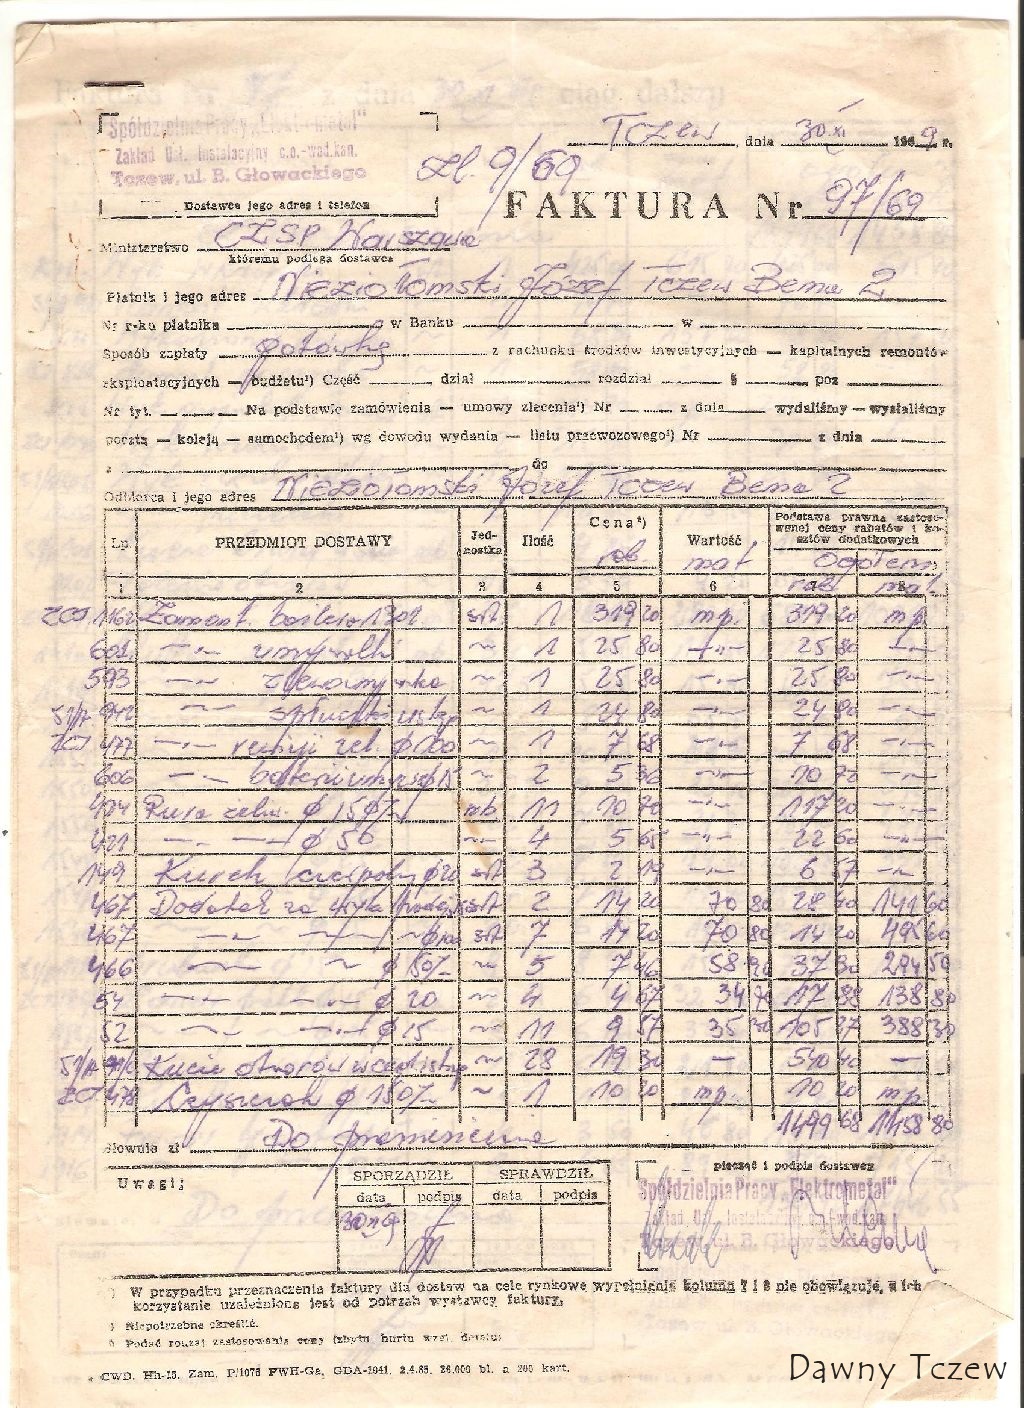 Spółdzielnia Pracy „Elektrometal"
Zakład Usł. Instalacyjny c.o.-wod.kan.
Tczew, ul. B. Głowackiego
Dostawca jego adres i telefon
Tczew, dnia 30 XI 1969 r.
zl. 9/69
FAKTURA Nr 97/69
Ministerstwo CZSP Warszawa
któremu podlega dostawca
Płatnik i jego adres Nieziołomski Józef Tczew Bema 2
Nr r-ku płatnika w Banku w
Sposób zapłaty gotówką z rachunku środków inwestycyjnych — kapitalnych remontów
eksploatacyjnych — budżetu¹) Część dział rozdział § poz
Nr tyt. Na podstawie zamówienia — umowy zlecenia¹) Nr z dnia wydaliśmy — wysłaliśmy
pocztą — koleją — samochodem¹) wg dowodu wydania — listu przewozowego¹) Nr z dnia
z do
Odbiorca i jego adres Nieziołomski Józef Tczew Bema 2
Lp. PRZEDMIOT DOSTAWY Jednostka Ilość Cena²) rob Wartość mat Podstawa prawna zastosowanej ceny rabatów i kosztów dodatkowych Ogółem rob mat.
1 2 3 4 5 6 7 8
1162 Zamont. szt 1 319 20 mp. 319 20 mp.
601 —„— umywalki ~ 1 25 80 —„— 25 80 —„—
593 —„— zlewozmywaka ~ 1 25 80 —„— 25 80 —„—
—„— ~ 1 24 80 —„— 24 80 —„—
477 —„— żel. φ 100 ~ 1 7 68 —„— 7 68 —„—
606 —„— φ 15 ~ 2 5 36 —„— 10 72 —„—
Rura φ 150 mb 11 10 70 —„— 117 20 —„—
421 —„— φ 50 4 5 65 —„— 22 60 —„—
149 Kurek czerpalny szt 3 2 19 —„— 6 57 —„—
467 Dodatek za szt 2 14 20 70 80 28 40 141 60
467 —„— szt 7 14 20 70 80 14 20 495 60
466 —„— ~ 5 7 46 58 90 37 30 294 50
54 —„— φ 20 ~ 4 4 67 34 70 17 88 138 80
52 —„— φ 15 ~ 11 9 57 35 30 105 37 388 30
Kucie otworów ~ 28 19 30 — 540 40 —
478 Czyszczak φ 150 ~ 1 10 20 mp. 10 20 mp.
1499 68 1458 80
Słownie zł Do przeniesienia
Uwagi;
SPORZĄDZIŁ SPRAWDZIŁ
data podpis data podpis
pieczęć i podpis dostawcy
Spółdzielnia Pracy „Elektrometal"
Zakład Usł. Instalacyjny c.o.-wod.kan.
Tczew, ul. B. Głowackiego
W przypadku przeznaczenia faktury dla dostaw na cele rynkowe wypełnienie kolumn 7 i 8 nie obowiązuje, a ich
korzystanie uzależnione jest od potrzeb wystawcy faktury.
Niepotrzebne skreślić.
Podać rodzaj zastosowania ceny (zbytu hurtu detalu)
CWD. Hh-15. Zam. P/1076 PWH-Ga, GDA-1941, 2.4.65. 26.000 bl. a 200 kart.
Dawny Tczew